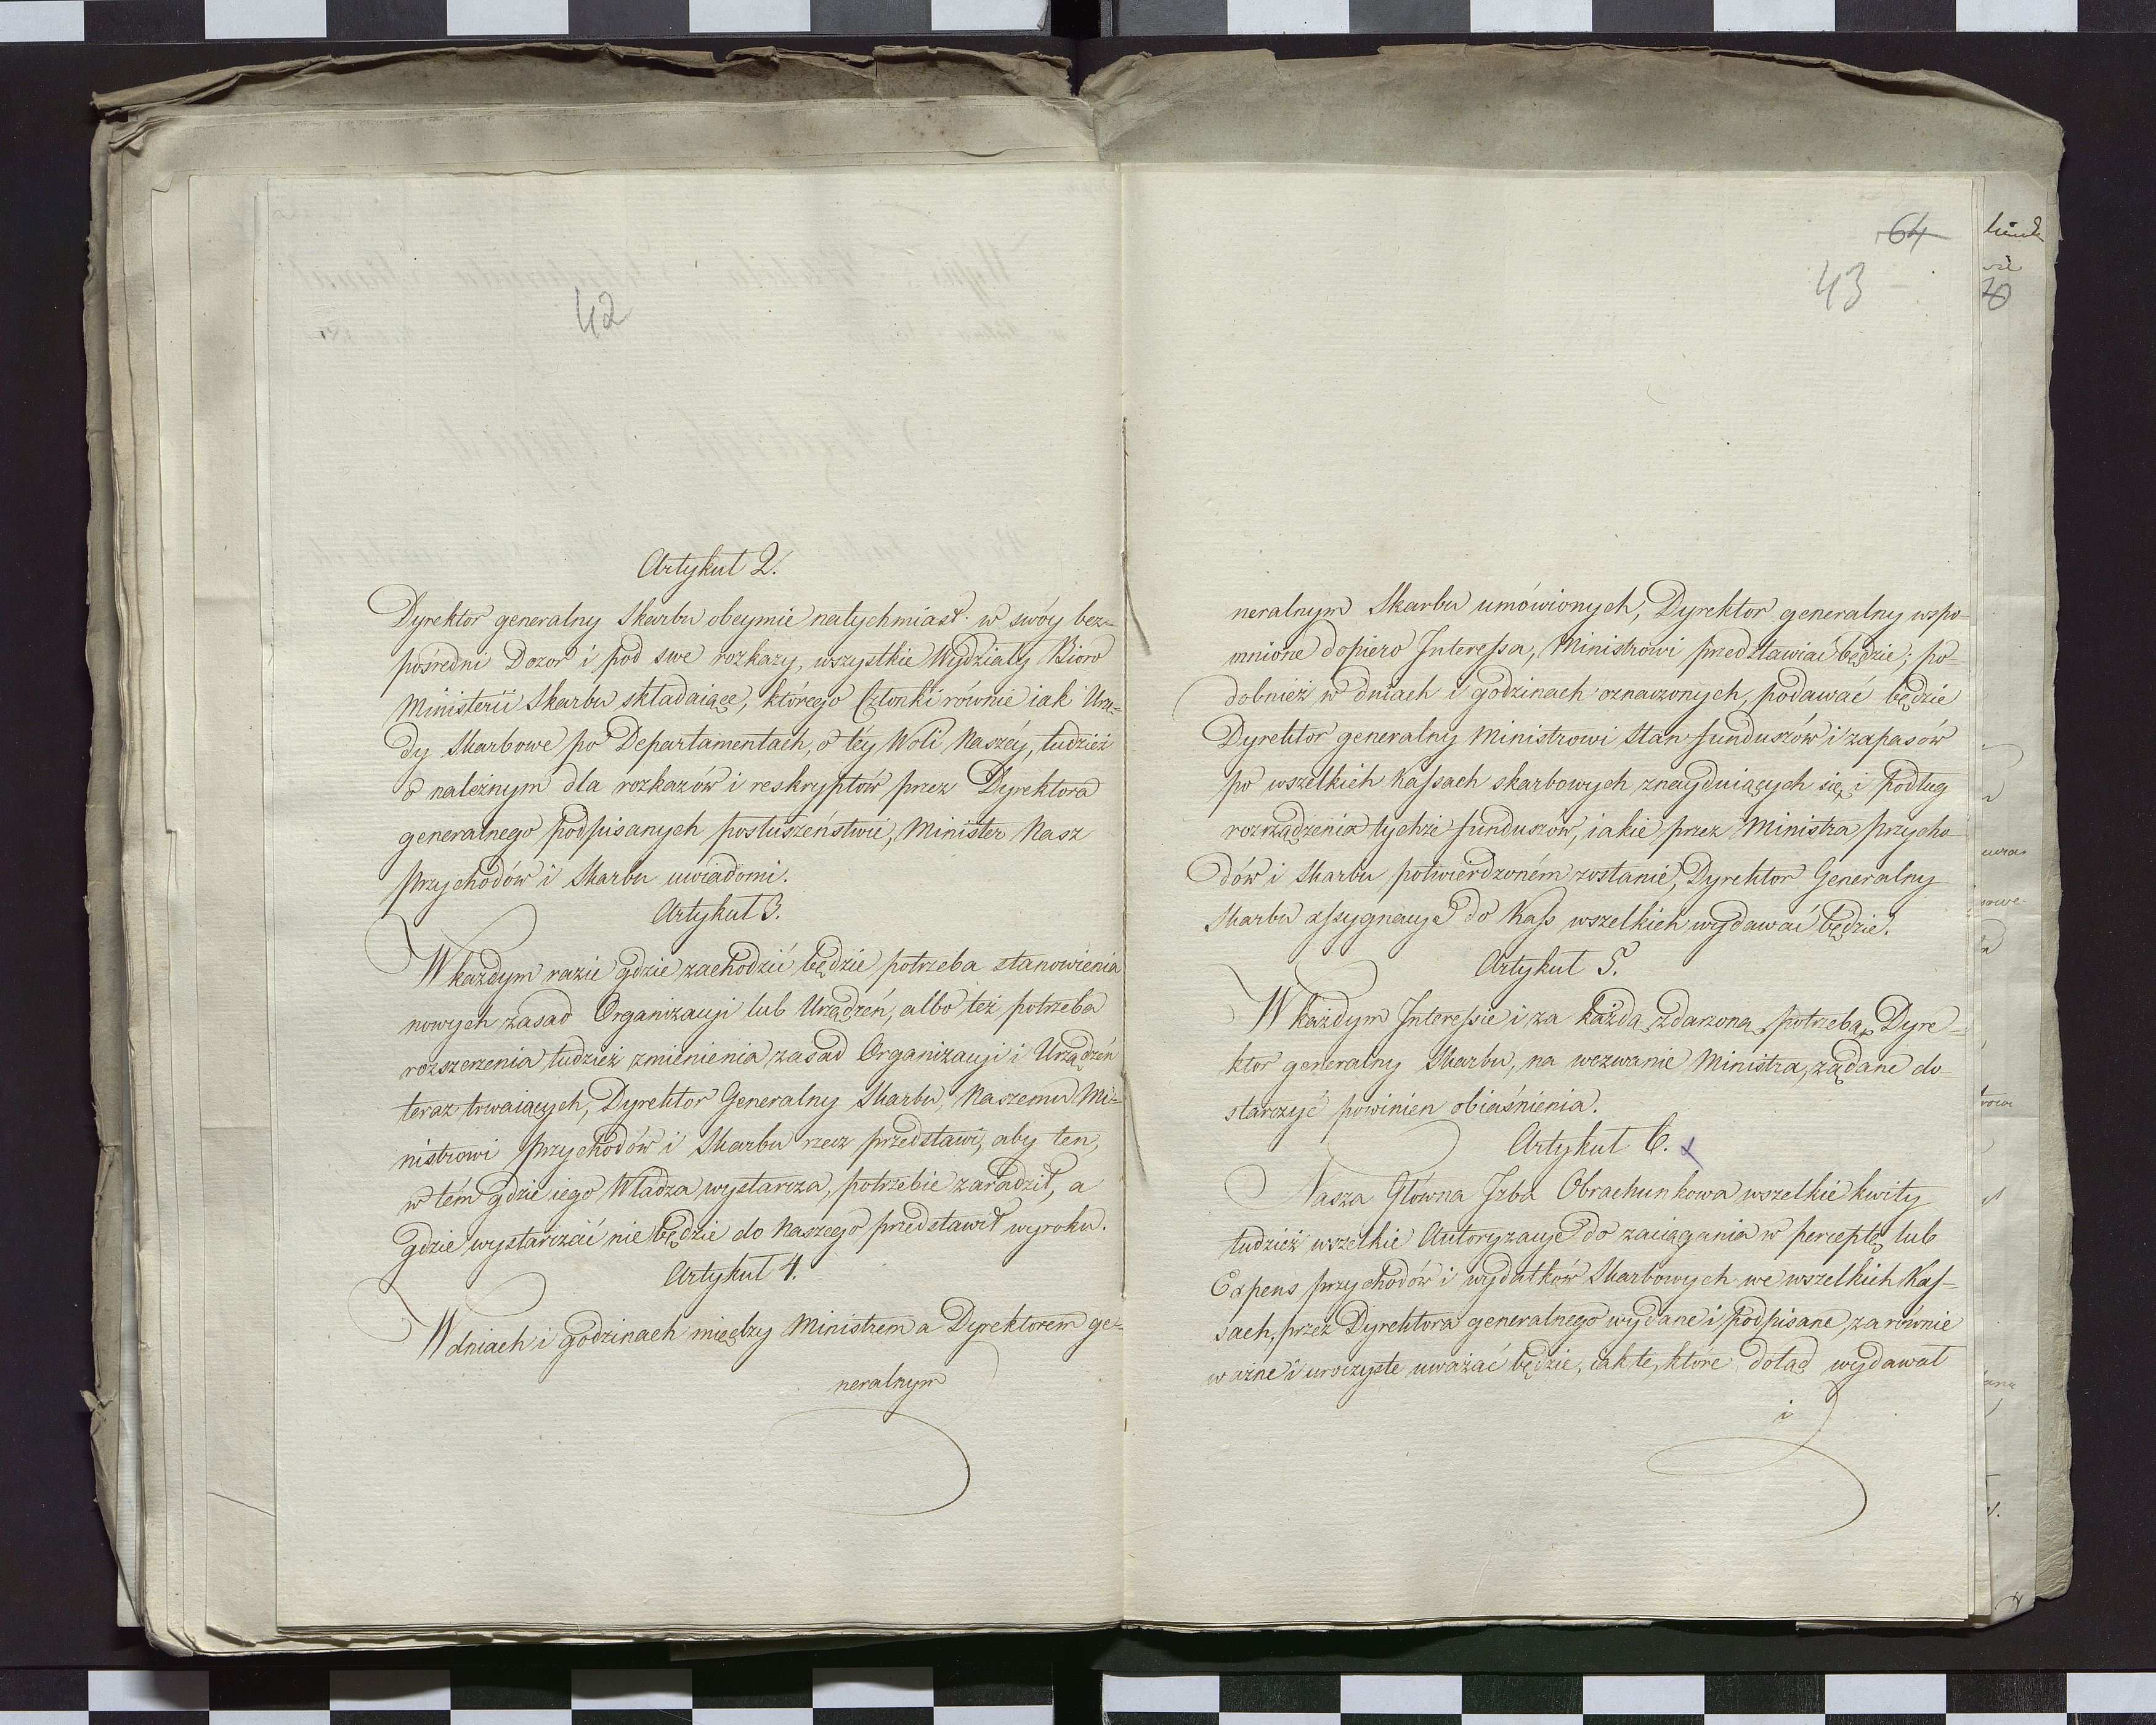 42
Artykuł 2.
Dyrektor generalny Skarbu obeymie natychmiast w swóy bez-
pośredni Dozor i pod swe rozkazy, wszystkie Wydziały Biorо
Ministerii Skarbu składaiące, którego Członki równie iak Urzę-
dy Skarbowe po Departamentach, o téy Woli Naszéy, tudzież
o należnym dla rozkazów i reskryptów przez Dyrektora
generalnego podpisanych posłuszeństwie, Minister Nasz
Przychodów i Skarbu uwiadomi.
Artykuł 3.
W każdym razie gdzie zachodzić będzie potrzeba stanowienia
nowych zasad Organizacyi lub Urządzeń, albo też potrzeba
rozszerzenia tudzież zmienienia zasad Organizacyi i Urządzeń
teraz trwaiących, Dyrektor Generalny Skarbu, Naszemu Mi-
nistrowi Przychodów i Skarbu rzecz przedstawi, aby ten,
w tém gdzie iego Władza wystarcza, potrzebie zaradził, a
gdzie wystarczać nie będzie do Naszego przedstawił wyroku.
Artykuł 4.
W dniach i godzinach między Ministrem a Dyrektorem ge-
neralnym
64
43
neralnym Skarbu umówionych, Dyrektor generalny wspo-
mnione dopiero Interessa, Ministrowi przedstawiać będzie; po-
dobnież w dniach i godzinach oznaczonych, podawać będzie
Dyrektor generalny Ministrowi Stan funduszów i zapasów
po wszelkich Kassach skarbowych znayduiących się i podług
rozrządzenia tychże funduszów, iakie przez Ministra Przycho-
dów i Skarbu potwierdzoném zostanie, Dyrektor Generalny
Skarbu assygnacye do Kass wszelkich wydawać będzie.
Artykuł 5.
W każdym Interessie i za każdą zdarzoną potrzebą, Dyre-
ktor generalny Skarbu, na wezwanie Ministra, żądane do-
starczyć powinien obiaśnienia.
Artykuł 6.
Nasza Główna Izba Obrachunkowa wszelkie kwity
tudzież wszelkie Autoryzacye do zaciągania w perceptę lub
Expens przychodów i wydatków Skarbowych we wszelkich Kas-
sach, przez Dyrektora generalnego wydane i podpisane, zarównie
ważne i uroczyste uważać będzie, iak te, które dotąd wydawał
i